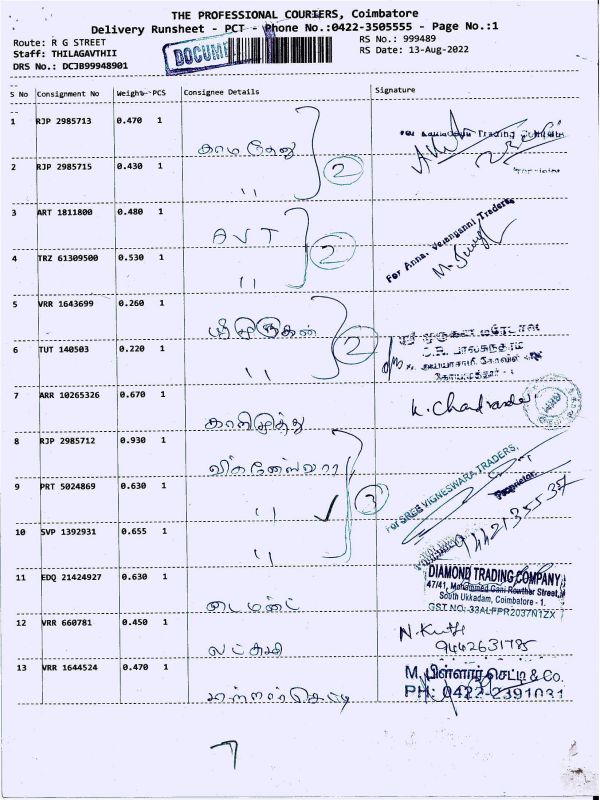 THE PROFESSIONAL COURIERS, Coimbatore
Delivery Runsheet - PCT - Phone No.:0422-3505555 - Page No.:1
Route: R G STREET
RS No.: 999489
Staff: THILAGAVTHII
DOCUM
RS Date: 13-Aug-2022
DRS No.: DCJB99948901
S No Consignment No Weight PCS Consignee Details Signature
1 RJP 2985713 0.470 1
காமதேனு
2 RJP 2985715 0.430 1
" 2
3 ART 1811800 0.480 1
AVT
For Anna. Velanganni Traders
4 TRZ 61309500 0.530 1
" 2
5 VRR 1643699 0.260 1
ஸ்ரீமுருகன்
6 TUT 140503 0.220 1
" 2
7 ARR 10265326 0.670 1
காளிமுத்து
K. Chandrasekar
8 RJP 2985712 0.930 1
விக்னேஸ்வரா
9 PRT 5024869 0.630 1
" 3
For SREE VIGNESWARA TRADERS,
Proprietor
10 SVP 1392931 0.655 1
"
9442135537
11 EDQ 21424927 0.630 1
டைமண்ட்
DIAMOND TRADING COMPANY
47/41, Mohammed Gani Rowther Street,
South Ukkadam, Coimbatore - 1.
GST NO: 33ALFPR2037N1ZX
12 VRR 660781 0.450 1
லட்சுமி
9442631785
13 VRR 1644524 0.470 1
M. பிள்ளார் செட்டி & Co.
PH: 0422-2391031